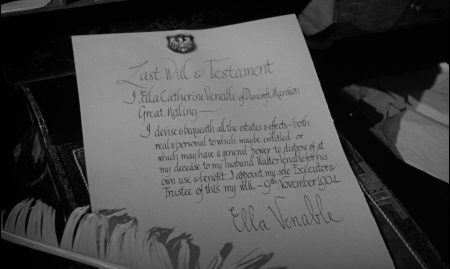 Last Will & Testament
I Ella Catherine Venable of Duncroft Mansion
Great Melling
I devise & bequeath all the estates & effects - both
real & personal to which may be entitled or
which may have a general power to dispose of at
my decease to my husband Walter Venable for his
own use & benefit. I appoint my sole Executor &
Trustee of this my Will - 9th November 1904
Ella Venable